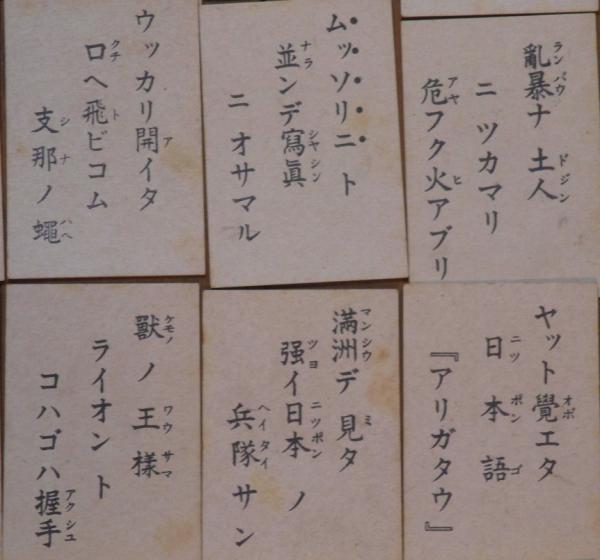 亂暴ナ 土人
ニツカマリ
危フク火アブリ
ムッソリニト
並ンデ寫眞
ニオサマル
ウッカリ開イタ
口ヘ飛ビコム
支那ノ蠅
ヤット覺エタ
日本語
『アリガタウ』
滿洲デ 見タ
强イ日本ノ
兵隊サン
獸ノ王樣
ライオント
コハゴハ握手